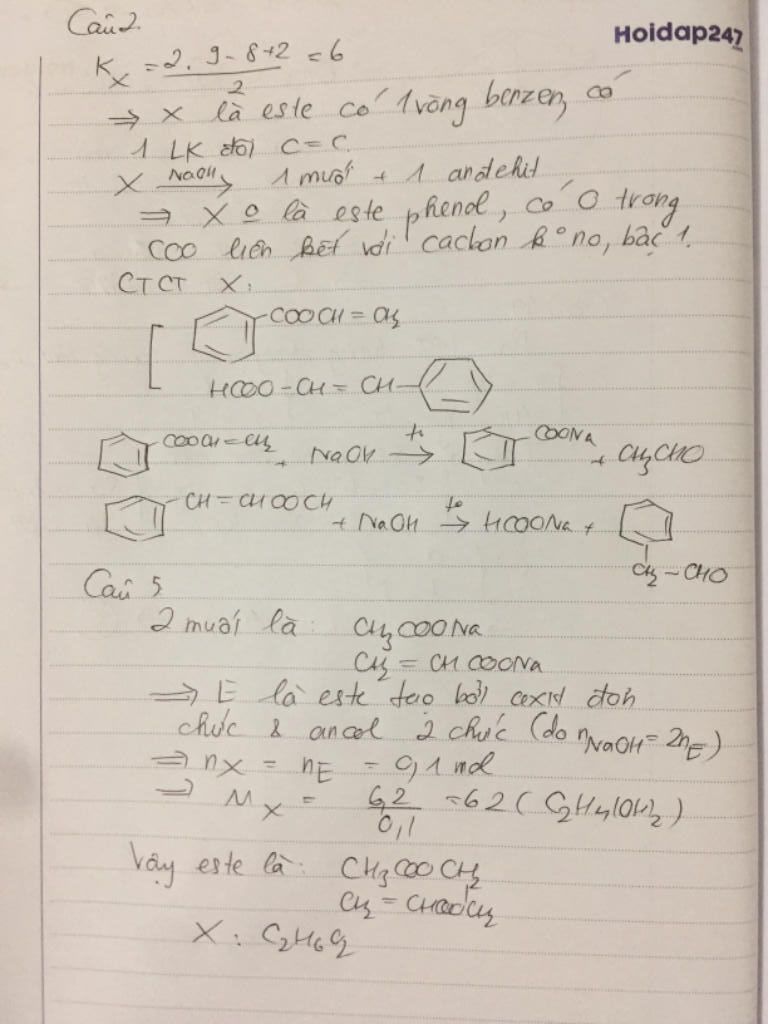 Câu 2.
Hoidap247
.com
Kx = 2.9-8+2 / 2 = 6
⇒ X là este có 1 vòng benzen, có
1 LK đôi C=C.
X NaOH→ 1 muối + 1 andehit
⇒ X là este phenol, có O trong
COO liên kết với cacbon k° no, bậc 1.
CTCT X:
COOCH=CH2
HCOO-CH=CH-
COOCH=CH2 + NaOH t°→ COONa + CH3CHO
CH=CHOOCH + NaOH t°→ HCOONa +
CH2-CHO
Câu 5
2 muối là: CH3COONa
CH2=CHCOONa
⇒ E là este tạo bởi axit đơn
chức & ancol 2 chức (do nNaOH=2nE)
⇒ nX = nE = 0,1 mol
⇒ MX = 6,2 / 0,1 = 62 (C2H4(OH)2)
Vậy este là: CH3COOCH2
CH2=CHCOOCH2
X: C2H6O2